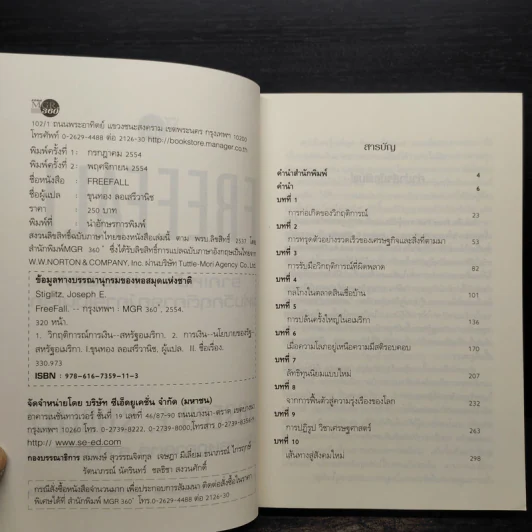 M
360
102/1 ถนนพระอาทิตย์ แขวงชนะสงคราม เขตพระนคร กรุงเทพฯ 10260
โทรศัพท์ 0-2629-4488 ต่อ 2126-30 http://bookstore.manager.co.th
พิมพ์ครั้งที่ 1: กรกฎาคม 2554
พิมพ์ครั้งที่ 2: พฤศจิกายน 2554
ชื่อหนังสือ FREEFALL
ชื่อผู้แปล : ขุนทอง ลอเสรีวานิช
ราคา 250 บาท
พิมพ์ที่ : นำอักษรการพิมพ์
สงวนลิขสิทธิ์ฉบับภาษาไทยของหนังสือเล่มนี้ ตาม พรบ.ลิขสิทธิ์ 2537 โดย
สำนักพิมพ์MGR 360° ซึ่งได้รับลิขสิทธิ์การแปลฉบับภาษาอังกฤษเป็นไทยจาก
W.W.NORTON & COMPANY, Inc. ผ่านบริษัท Tuttle-Mori Agency Co.,Ltd
ข้อมูลทางบรรณานุกรมของหอสมุดแห่งชาติ
Stiglitz, Joseph E.
FreeFall. -- กรุงเทพฯ : MGR 360°, 2554.
320 หน้า.
1. วิกฤติการณ์การเงิน--สหรัฐอเมริกา. 2. การเงิน--นโยบายของรัฐ--
สหรัฐอเมริกา. I.ขุนทอง ลอเสรีวานิช, ผู้แปล. II. ชื่อเรื่อง.
330.973
ISBN : 978-616-7359-11-3
จัดจำหน่ายโดย บริษัท ซีเอ็ดยูเคชั่น จำกัด (มหาชน)
อาคารเนชั่นทาวเวอร์ ชั้นที่ 19 เลขที่ 46/87-90 ถนนบางนา-ตราด เขตบางนา
กรุงเทพฯ 10260 โทร. 0-2739-8222, 0-2739-8000,โทรสาร
http:// www.se-ed.com
กองบรรณาธิการ สมพงษ์ สุวรรณจิตกุล เจษฎา มีเลี่ยม ธนาภรณ์
รัตนาภรณ์ นัครินทร์ ชลธิชา สงวนศักดิ์
กรณีสั่งซื้อหนังสือจำนวนมาก เพื่อประกอบการสัมมนา ติดต่อสั่งซื้อในราคา
พิเศษได้ที่ สำนักพิมพ์ MGR 360° โทร.0-2629-4488 ต่อ 2126-30
สารบัญ
คำนำสำนักพิมพ์ 4
คำนำ 6
บทที่ 1
การก่อเกิดของวิกฤติการณ์ 23
บทที่ 2
การทรุดตัวอย่างรวดเร็วของเศรษฐกิจและสิ่งที่ตามมา 53
บทที่ 3
การรับมือวิกฤติการณ์ที่ผิดพลาด 82
บทที่ 4
กลโกงในตลาดสินเชื่อบ้าน 101
บทที่ 5
การปล้นครั้งใหญ่ในอเมริกา 136
บทที่ 6
เมื่อความโลภอยู่เหนือความมีสติรอบคอบ 170
บทที่ 7
ลัทธิทุนนิยมแบบใหม่ 207
บทที่ 8
จากการฟื้นตัวสู่ความรุ่งเรืองของโลก 232
บทที่ 9
การปฏิรูป วิชาเศรษฐศาสตร์ 263
บทที่ 10
เส้นทางสู่สังคมใหม่ 298